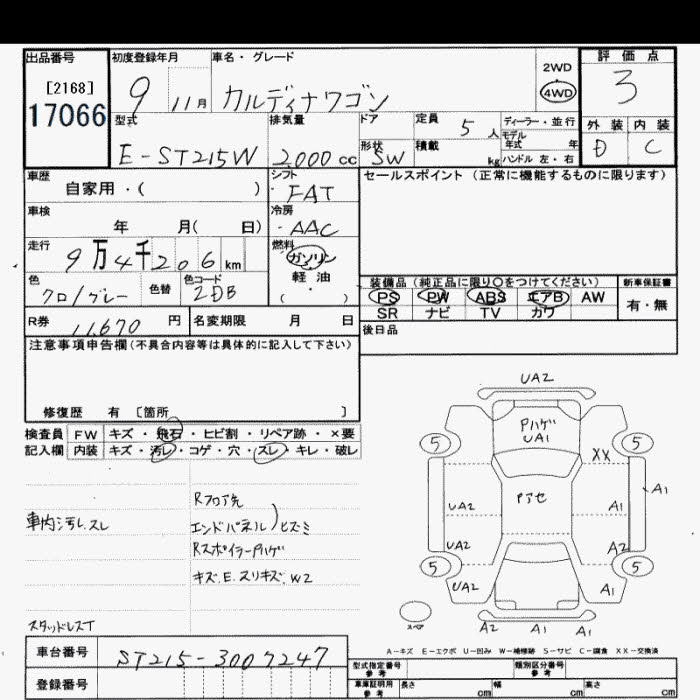 出品番号 初度登録年月 車名・グレード 評価点
[2168] 9 11月 カルディナワゴン 2WD 4WD 3
17066
型式 排気量 ドア 定員 5人 ディーラー・並行 外装 内装
形状 積載 kg モデル年式 年
E-ST215W 2000cc SW ハンドル 左・右 D C
車歴 シフト セールスポイント(正常に機能するものに限ります)
自家用・( ) FAT
車検 冷房
年 月( 日) AAC
走行 燃料
9万4千206km ガソリン
色 色替 色コード 軽油
クロ/グレー 2DB ( )
装備品(純正品に限り○をつけてください) 新車保証書
PS PW ABS エアB AW 有・無
SR ナビ TV カワ
R券 11,670円 名変期限 月 日
後日品
注意事項申告欄(不具合内容等は具体的に記入して下さい)
修復歴 有 [箇所 ]
検査員 FW キズ・飛石・ヒビ割・リペア跡・×要
記入欄 内装 キズ・汚レ・コゲ・穴・スレ・キレ・破レ
UA2
Pハゲ
UA1
5 5
XX
Rフロア先
Pアセ
A1
UA2 A1
車内汚レ.スレ
エンドパネル)ヒズミ
Rスポイラー Pハゲ
UA2 A2
5 5
キズ.E.スリキズ.W2
UA2 A1
スペア
スタッドレスT
A2 A1 A1
A-キズ E-エクボ U-凹み W-補修跡 S-サビ C-腐食 XX-交換済
車台番号 ST215-3007247
型式指定番号 参考 類別区分番号 参考
登録番号
車庫証明用 参考 長さ cm 幅 cm 高さ cm